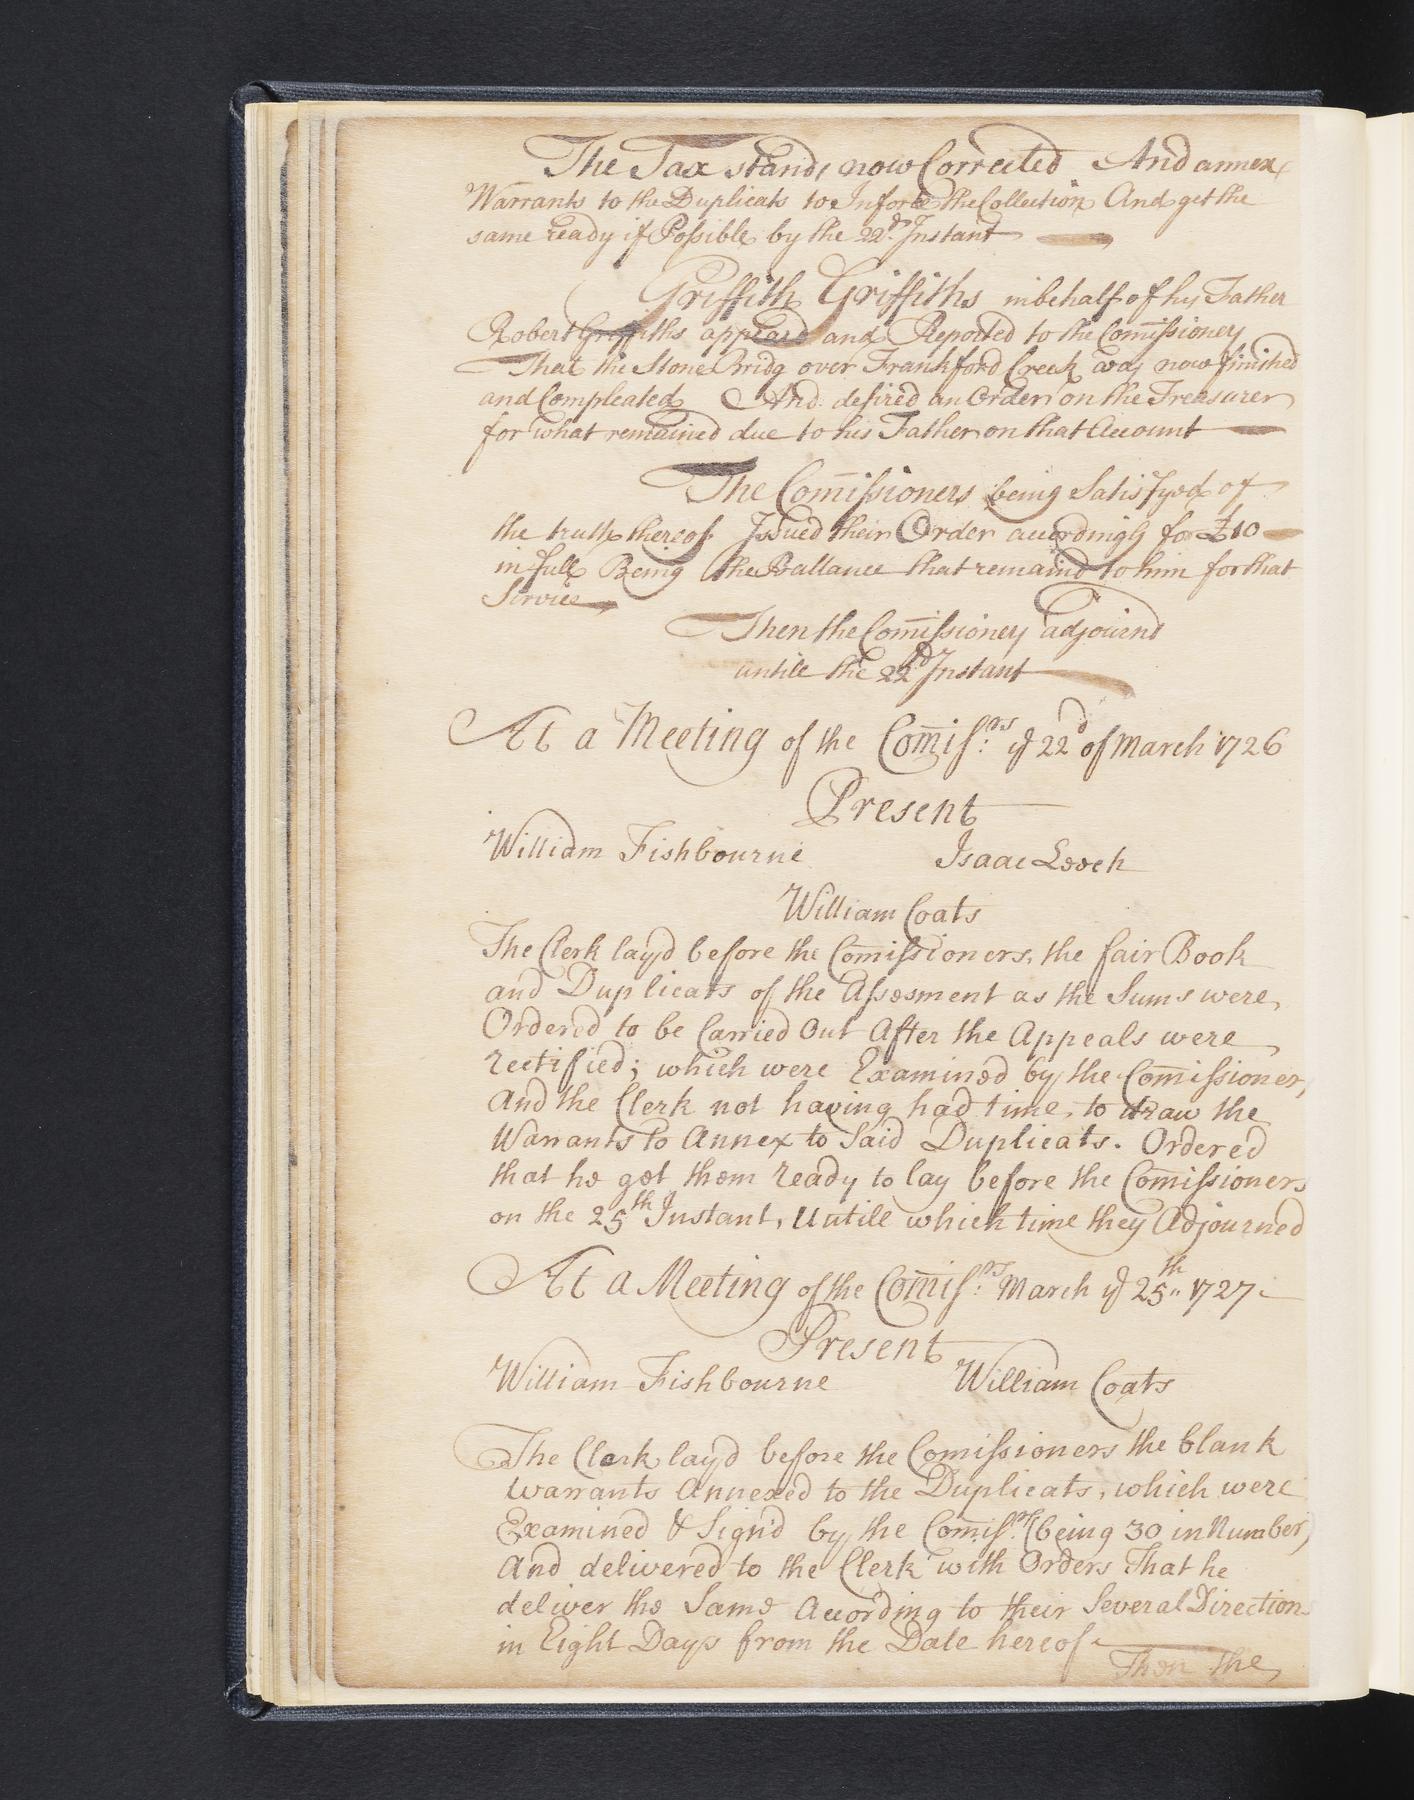 The Tax stands now Corrected And annex
Warrants to the Duplicats to Inforce the Collection And get the
same ready if Possible by the 22d. Instant
Griffith Griffiths in behalf of his Father
Robert Griffiths appeard and Reported to the Com̄issioners
That the Stone Bridg over Frankford Creek was now finished
and Compleated And desired an Order on the Treasurer
for what remained due to his Father on that Account
The Com̄issioners being Satisfyed of
the truth thereof Issued their Order accordingly for £10
in full Being the Ballance that remaind to him for that
Service
Then the Com̄issioners adjournd
untill the 22d Instant
At a Meeting of the Com̄iss:rs ye 22d of March 1726
Present
William Fishbourne Isaac Leech
William Coats
The Clerk lay'd before the Com̄issioners, the fair Book
and Duplicats of the Assesment as the Sums were,
Ordered to be Carried Out After the Appeals were
rectified; which were Examined by the Com̄issioners,
And the Clerk not having had time, to draw the
Warrants to Annex to Said Duplicats. Ordered
that he get them ready to lay before the Com̄issioners
on the 25th Instant, Untill which time they Adjourned
At a Meeting of the Com̄iss:rs March ye 25th 1727
Present
William Fishbourne William Coats
The Clerk lay'd before the Comissioners the blank
Warrants Annexed to the Duplicats, which were
Examined & Sign'd by the Com̄iss:rs (being 30 in Number)
And delivered to the Clerk with Orders That he
deliver the Same According to their Several Directions
in Eight Days from the Date hereof
Then the